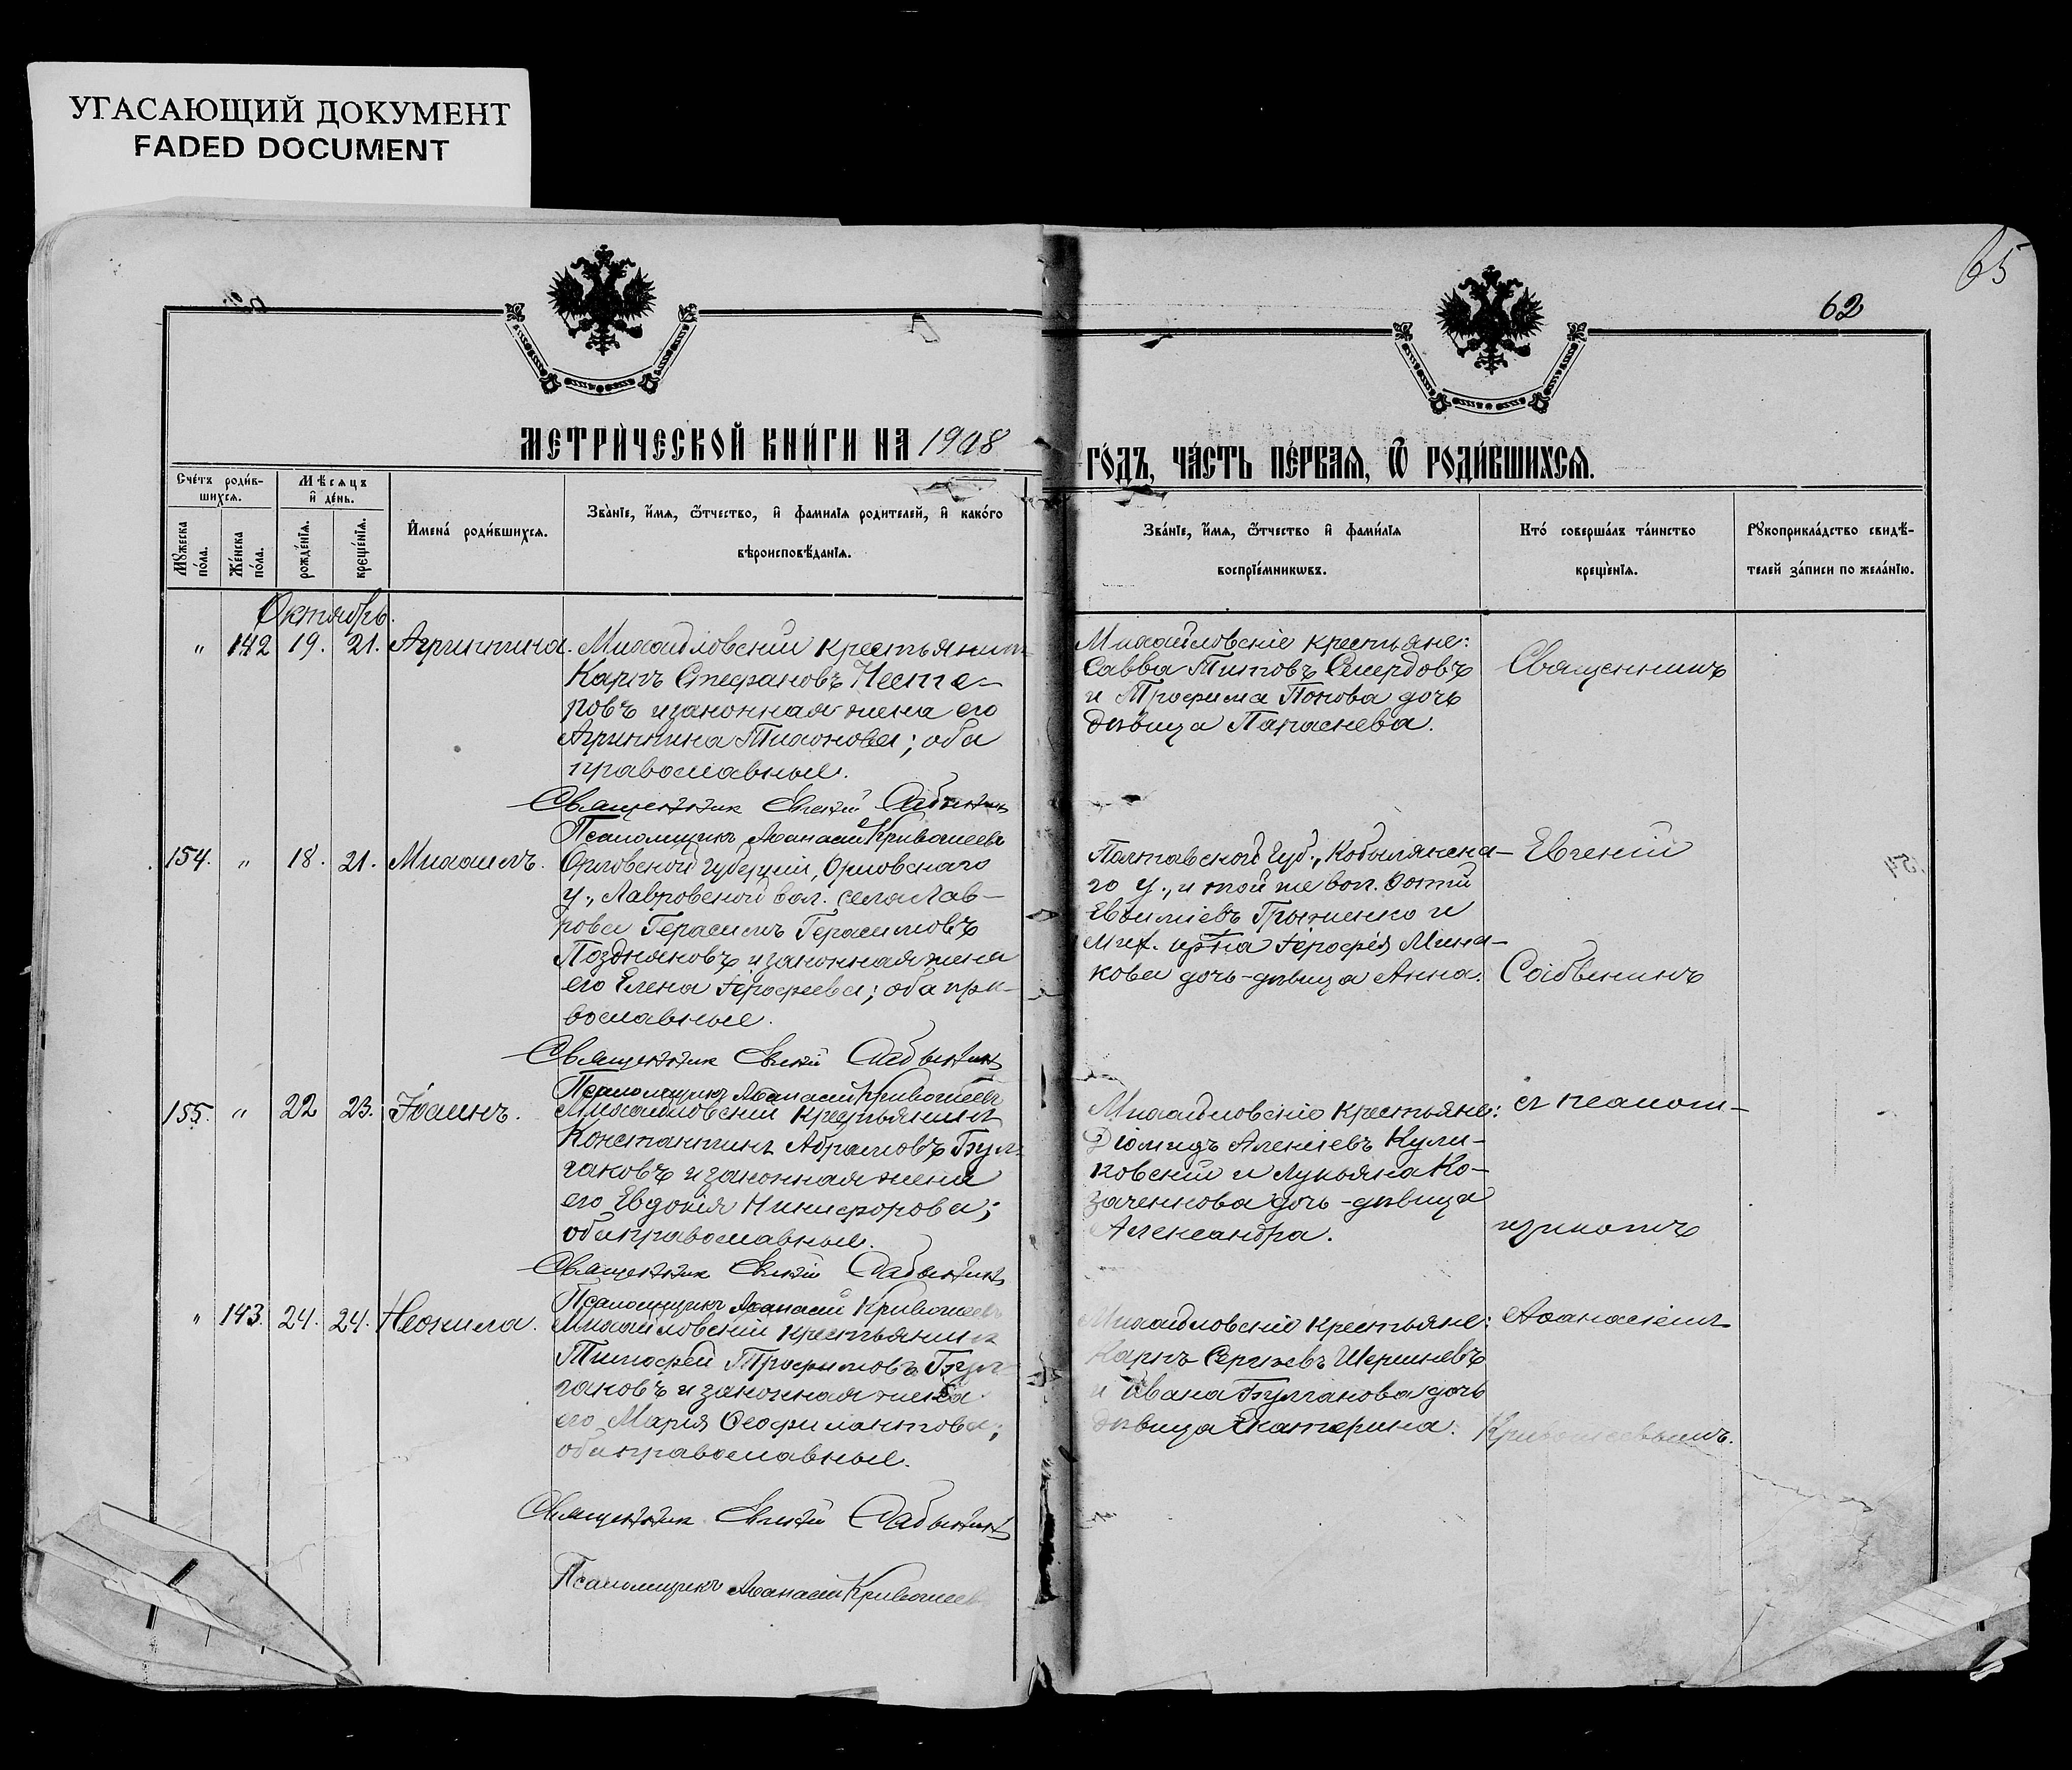 УГАСАЮЩИЙ ДОКУМЕНТ
FADED DOCUMENT
65
62
МЕТРИ́ЧЕСКОЙ КНИ́ГИ НА 1908
ГО́ДЪ, ЧА́СТЬ ПЕ́РВАѦ, Ѿ РОДИ́ВШИХСѦ.
Сче́тъ роди́в-
шихсѧ.
Мѣсѧцъ
и҆ де́нь.
Мꙋжеска
по́ла.
Же́нска
по́ла.
рожде́нїѧ.
креще́нїѧ.
И҆мена́ роди́вшихсѧ.
Зва́нїе, и҆́мѧ, ѻ҆́тчество, и҆ фами́лїѧ роди́телей, и҆ како́го
вѣроисповѣ́данїѧ.
Зва́нїе, и҆́мѧ, ѻ҆́тчество и҆ фами́лїѧ
воспрїе́мникѡвъ.
Кто́ соверша́лъ та́инство
креще́нїѧ.
Рꙋкоприкла́дство свидѣ́-
телей за́писи по жела́нїю.
Октябрь.
" 142 19. 21. Агриппина.
Михайловскій крестьянинъ
Карпъ Стефановъ Несте-
ровъ и законная жена его
Агриппина Тихонова; оба
православные.
Священник Евгеній Савынин
Псаломщикъ Аѳанасій Кривошеевъ
Михайловскіе крестьяне:
Савва Титовъ Смердовъ
и Трофима Попова дочь
дѣвица
Священникъ
154. " 18. 21. Михаилъ.
Орловской губерніи, Орловскаго
у., Лавровской вол. села Лав-
рова Герасимъ Герасимовъ
Поздняковъ и законная жена
его Елена Іерофеева; оба пра-
вославные.
Священник Евгеній Савынин
Псаломщикъ Аѳанасій Кривошеевъ
Полтавской губ., Кобылякска-
го у., и той же вол. Фотій
Евѳиміевъ и
Мих. кр-на Іерофея Мина-
кова дочь-дѣвица Анна.
Евгеній
155. " 22 23. Іоаннъ.
Михайловскій крестьянинъ
Константинъ Абрамовъ Бул-
гаковъ и законная жена
его Евдокія Никифорова;
оба православные.
Священник Евгеній Савынин
Псаломщикъ Аѳанасій Кривошеевъ
Михайловскіе крестьяне:
Діомидъ Алексіевъ Кули-
ковскій и Лукьяна Ко-
заченкова дочь-дѣвица
Александра.
съ псалом-
щикомъ
" 143. 24. 24. Неонила.
Михайловскій крестьянинъ
Тимофей Трофимовъ Бул-
гаковъ и законная жена
его Марія Ѳеофилактова;
оба православные.
Священник Евгеній Савынин
Псаломщикъ Аѳанасій Кривошеевъ
Михайловскіе крестьяне:
Карпъ Сергѣевъ Шершневъ
и Ивана Булгакова дочь
дѣвица Екатерина.
Аѳанасіемъ
Кривошеевымъ.